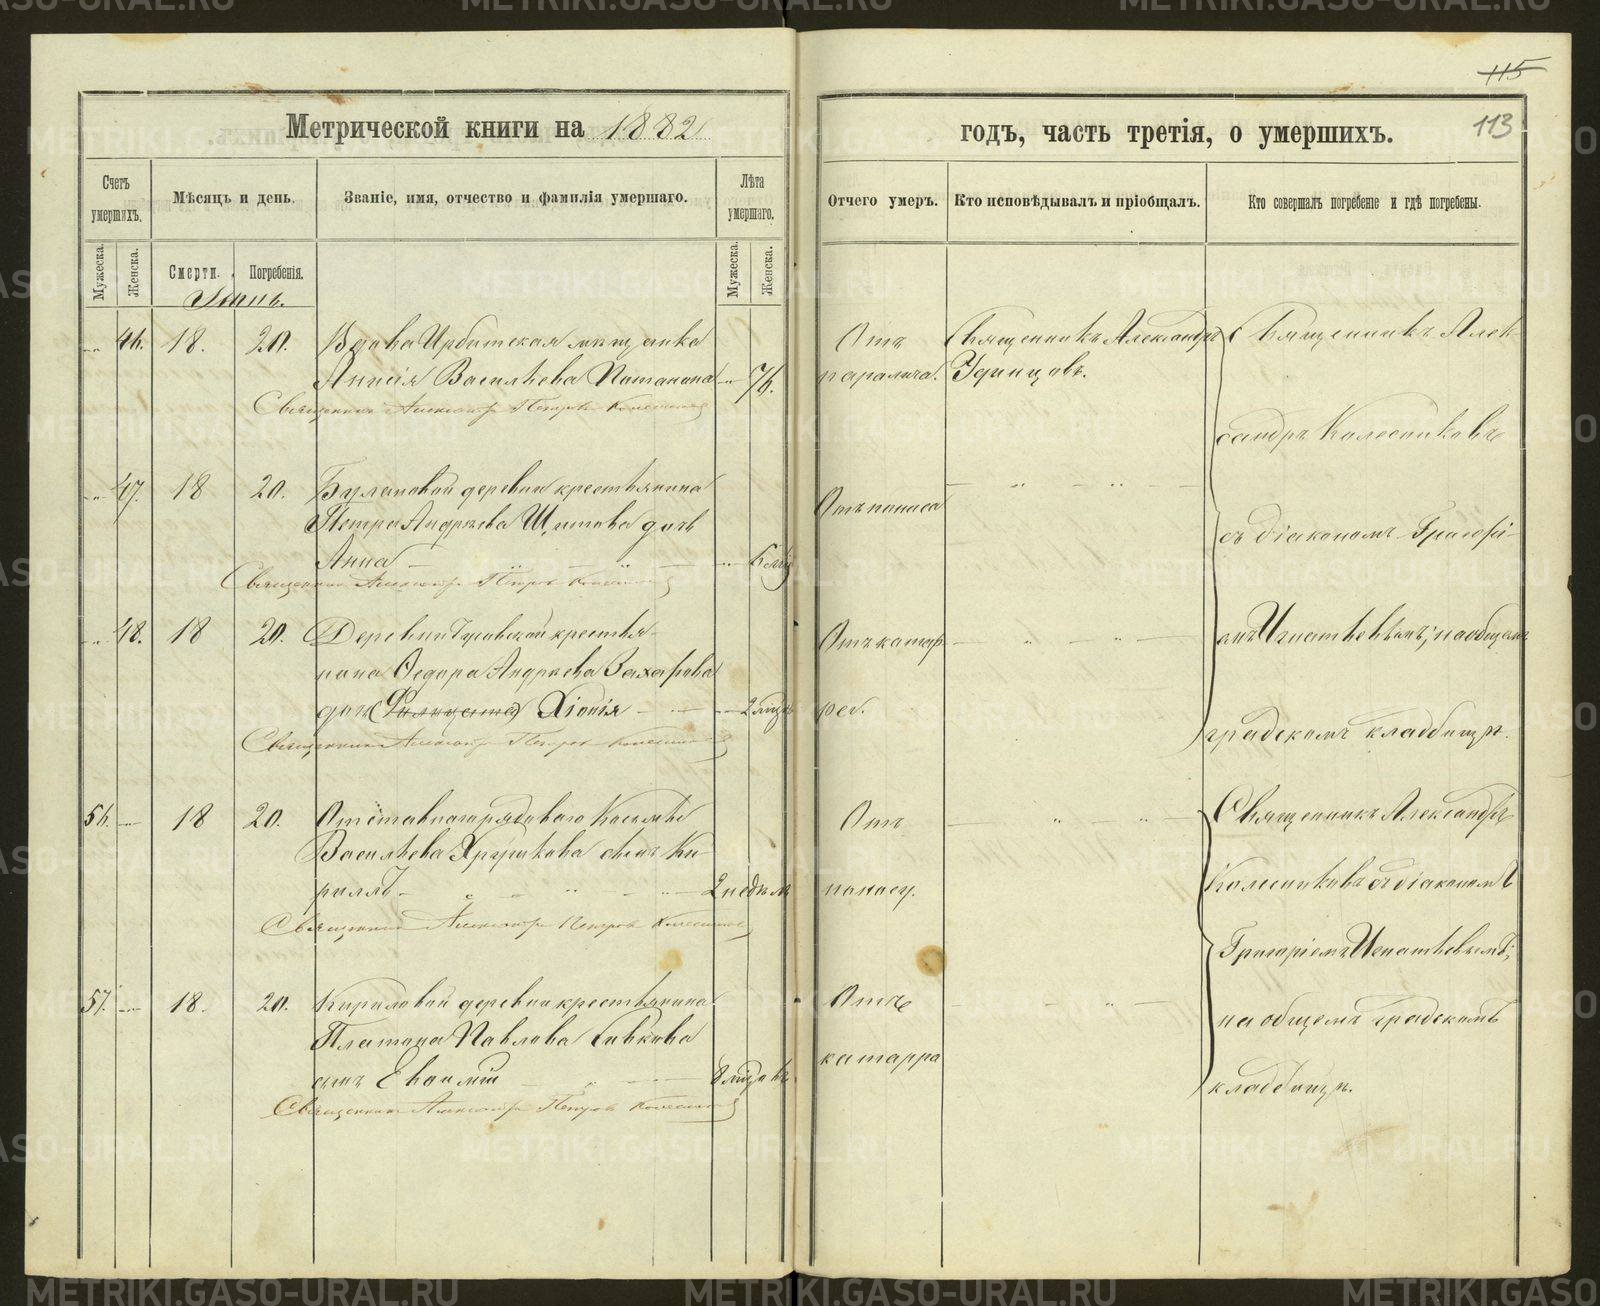 115
113
Метрической книги на 1882
годъ, часть третія, о умершихъ.
Счетъ умершихъ.
Мѣсяцъ и день.
Званіе, имя, отчество и фамилія умершаго.
Лѣта умершаго.
Отчего умеръ.
Кто исповѣдывалъ и пріобщалъ.
Кто совершалъ погребеніе и гдѣ погребены.
Мужеска.
Женска.
Смерти.
Погребенія.
Мужеска.
Женска.
46. 18. 20. Вдова Ирбитская мѣщанка
Анисія Васильева Потапова 76.
Священникъ Александръ Петровъ Колесниковъ
Отъ
паралича.
Священникъ Александръ
Удинцовъ.
47. 18 20. Булановой деревни крестьянина
Петра Андреева Шитова дочь
Анна 6 мѣс
Священникъ Александръ Петровъ Колесниковъ
Отъ поноса
48. 18 20. Деревни крестья-
нина Ѳедора Андреева Захарова
дочь Хіонія 2 мѣс
Священникъ Александръ Петровъ Колесниковъ
Отъ катар
ра.
Священникъ Алек-
сандръ Колесниковъ
съ діакономъ Григорі-
емъ Игнатьевымъ; на общемъ
градскомъ кладбищѣ.
56. 18 20. Отставнаго рядоваго Космы
Васильева Хрушкова сынъ Ки-
риллъ 2 недѣли
Священникъ Александръ Петровъ Колесниковъ
Отъ
поносу.
57. 18. 20. Кириловой деревни крестьянина
Платона Павлова Сивкова
сынъ Евѳимій 8 мѣсяцевъ
Священникъ Александръ Петровъ Колесниковъ
Отъ
катарра
Священникъ Александръ
Колесниковъ съ діакономъ
Григоріемъ Игнатьевымъ;
на общемъ градскомъ
кладбищѣ.
METRIKI.GASO-URAL.RU